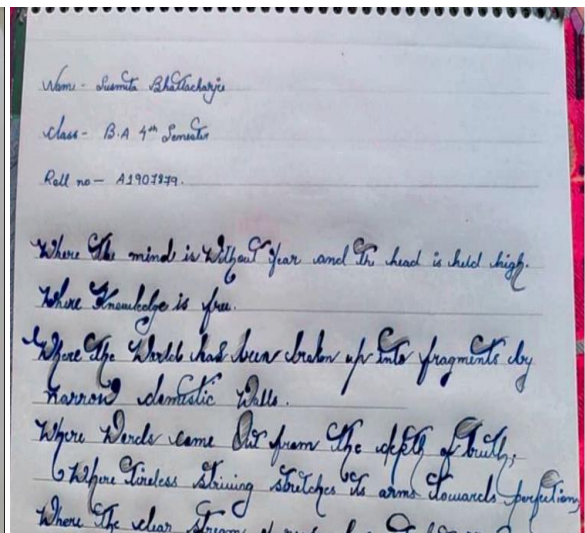 Name - Susmita Bhattacharje
Class - B.A 4th Semester
Roll no - A1907279.
Where the mind is without fear and the head is held high.
Where Knowledge is free.
Where the World has been broken up into fragments by
narrow domestic Walls.
Where Words come Out from the depth of truth,
Where tireless striving stretches its arms towards perfection,
Where the clear stream of